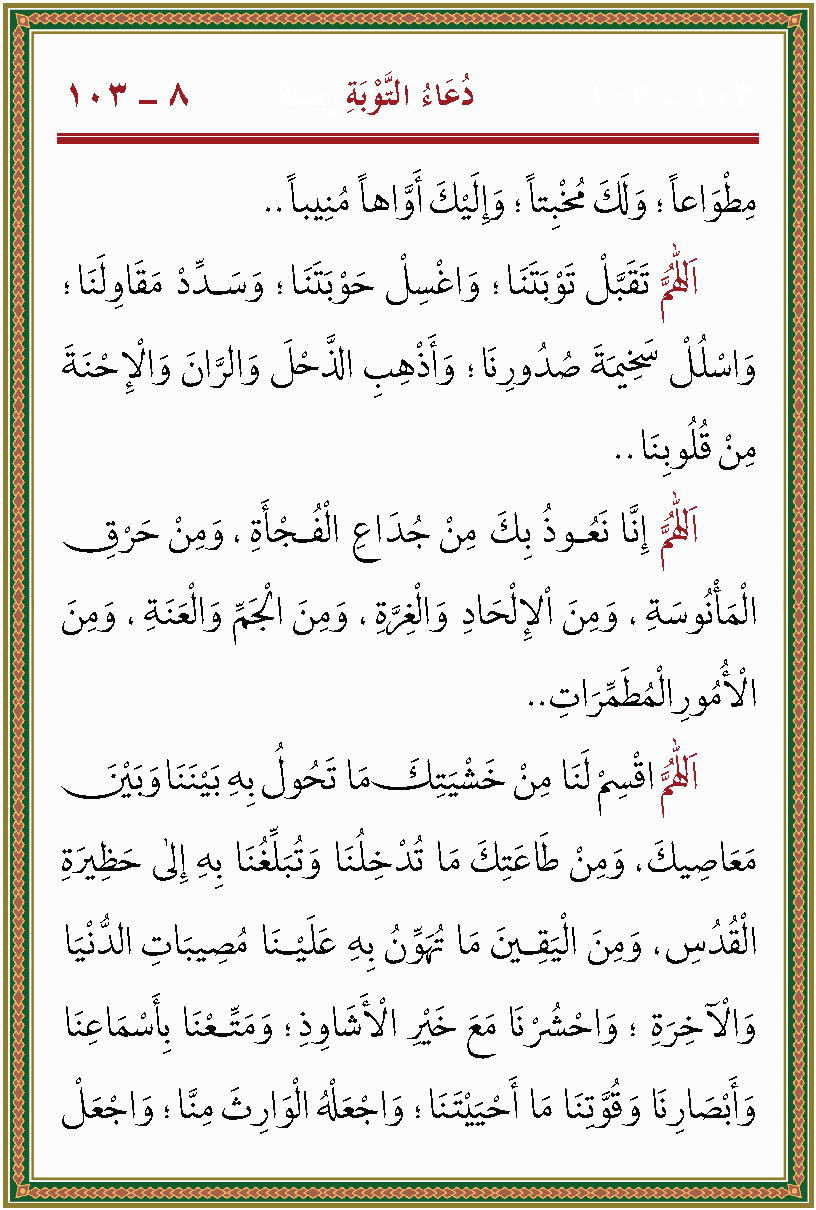 دُعَاءُ التَّوْبَةِ ٨ – ١٠٣
مِطْوَاعاً ؛ وَلَكَ مُخْبِتاً ؛ وَإِلَيْكَ أَوَّاهاً مُنِيباً ..
اَللّٰهُمَّ تَقَبَّلْ تَوْبَتَنَا ؛ وَاغْسِلْ حَوْبَتَنَا ؛ وَسَدِّدْ مَقَاوِلَنَا ؛
وَاسْلُلْ سَخِيمَةَ صُدُورِنَا ؛ وَأَذْهِبِ الذَّحْلَ وَالرَّانَ وَالْإِحْنَةَ
مِنْ قُلُوبِنَا ..
اَللّٰهُمَّ إِنَّا نَعُوذُ بِكَ مِنْ جُدَاعِ الْفُجْأَةِ ، وَمِنْ حَرْقِ
الْمَأْنُوسَةِ ، وَمِنَ الْإِلْحَادِ وَالْغِرَّةِ ، وَمِنَ الْجَمِّ وَالْعَنَةِ ، وَمِنَ
الْأُمُورِ الْمُطَمِّرَاتِ ..
اَللّٰهُمَّ اقْسِمْ لَنَا مِنْ خَشْيَتِكَ مَا تَحُولُ بِهِ بَيْنَنَا وَبَيْنَ
مَعَاصِيكَ ، وَمِنْ طَاعَتِكَ مَا تُدْخِلُنَا وَتُبَلِّغُنَا بِهِ إِلَىٰ حَظِيرَةِ
الْقُدُسِ ، وَمِنَ الْيَقِينَ مَا تُهَوِّنُ بِهِ عَلَيْنَا مُصِيبَاتِ الدُّنْيَا
وَالْآخِرَةِ ؛ وَاحْشُرْنَا مَعَ خَيْرِ الْأَشَاوِذِ ؛ وَمَتِّعْنَا بِأَسْمَاعِنَا
وَأَبْصَارِنَا وَقُوَّتِنَا مَا أَحْيَيْتَنَا ؛ وَاجْعَلْهُ الْوَارِثَ مِنَّا ؛ وَاجْعَلْ